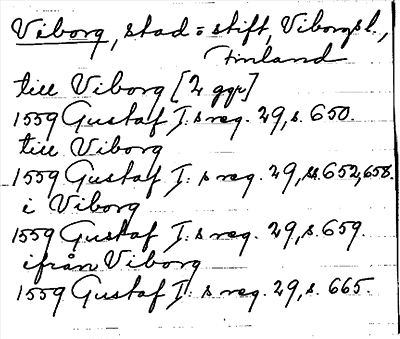 Viborg, stad o stift, Viborgs l.,
Finland
till Viborg [2 ggr]
1559 Gustaf I:s reg. 29, s. 650.
till Viborg
1559 Gustaf I:s reg. 29, ss. 652, 658.
i Viborg
1559 Gustaf I:s reg. 29, s. 659.
ifrån Viborg
1559 Gustaf I:s reg. 29, s. 665.